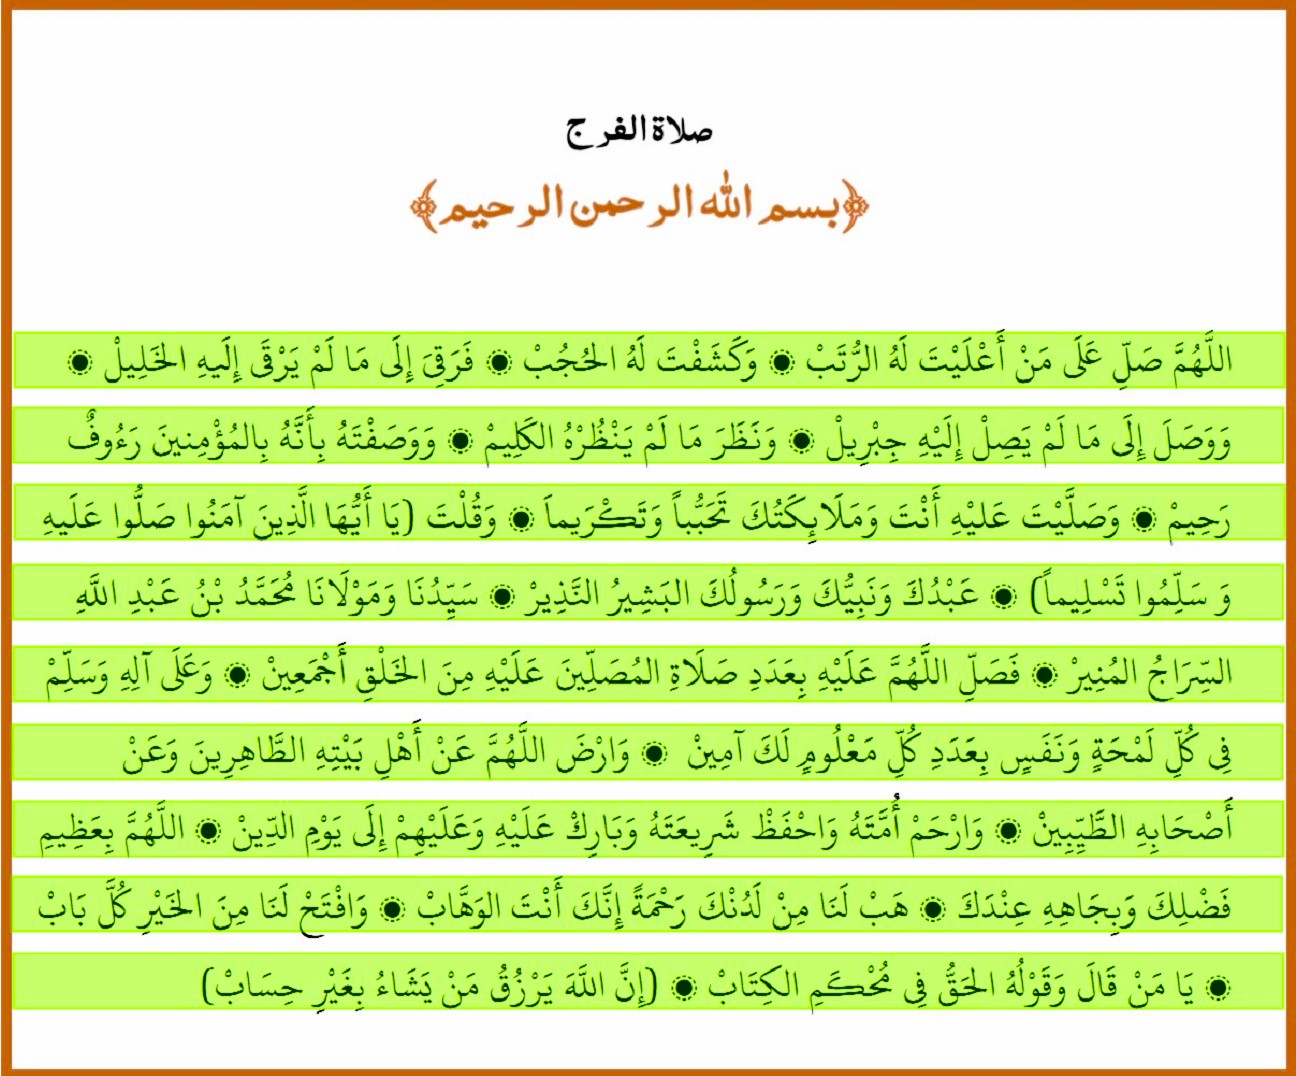 صلاة الفرج
﴿بسم الله الرحمن الرحيم﴾
اللَّهُمَّ صَلِّ عَلَى مَنْ أَعْلَيْتَ لَهُ الرُّتَبْ ۞ وَكَشَفْتَ لَهُ الحُجُبْ ۞ فَرَقِيَ إِلَى مَا لَمْ يَرْقَى إِلَيهِ الخَلِيلْ ۞
وَوَصَلَ إِلَى مَا لَمْ يَصِلْ إِلَيْهِ جِبْرِيلْ ۞ وَنَظَرَ مَا لَمْ يَنْظُرْهُ الكَلِيمْ ۞ وَوَصَفْتَهُ بِأَنَّهُ بِالمُؤْمِنينَ رَءُوفٌ
رَحِيمْ ۞ وَصَلَّيْتَ عَليْهِ أَنْتَ وَمَلَايِكَتُكَ تَحَبُّباً وَتَكْرَيماَ ۞ وَقُلْتَ (يَا أَيُّهَا الَّذِينَ آمَنُوا صَلُّوا عَلَيهِ
وَ سَلِّمُوا تَسْلِيماً) ۞ عَبْدُكَ وَنَبِيُّكَ وَرَسُولُكَ البَشِيرُ النَّذِيرْ ۞ سَيِّدُنَا وَمَوْلَانَا مُحَمَّدُ بْنُ عَبْدِ اللَّهِ
السِّرَاجُ المُنِيرْ ۞ فَصَلِّ اللَّهُمَّ عَلَيْهِ بِعَدَدِ صَلَاةِ المُصَلِّينَ عَلَيْهِ مِنَ الخَلْقِ أَجْمَعِينْ ۞ وَعَلَى آلِهِ وَسَلِّمْ
فِي كُلِّ لَمْحَةٍ وَنَفَسٍ بِعَدَدِ كُلِّ مَعْلُومٍ لَكَ آمِينْ ۞ وَارْضَ اللَّهُمَّ عَنْ أَهْلِ بَيْتِهِ الطَّاهِرِينَ وَعَنْ
أَصْحَابِهِ الطَّيِّبِينْ ۞ وَارْحَمْ أُمَّتَهُ وَاحْفَظْ شَرِيعَتَهُ وَبَارِكْ عَلَيْهِ وَعَلَيْهِمْ إِلَى يَوْمِ الدِّينْ ۞ اللَّهُمَّ بِعَظِيمِ
فَضْلِكَ وَبِجَاهِهِ عِنْدَكَ ۞ هَبْ لَنَا مِنْ لَدُنْكَ رَحْمَةً إِنَّكَ أَنْتَ الوَهَّابْ ۞ وَافْتَحْ لَنَا مِنَ الخَيْرِ كُلَّ بَابْ
۞ يَا مَنْ قَالَ وَقَوْلُهُ الحَقُّ فِي مُحْكَمِ الكِتَابْ ۞ (إِنَّ اللَّهَ يَرْزُقُ مَنْ يَشَاءُ بِغَيْرِ حِسَابْ)